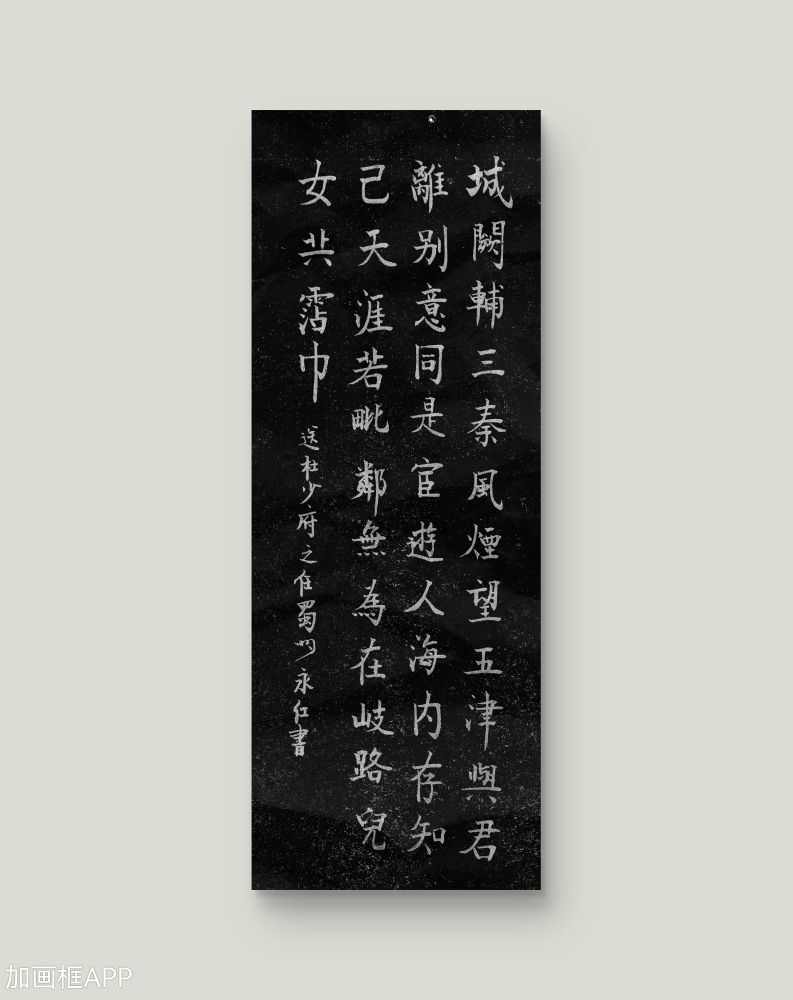 城闕輔三秦風煙望五津與君
離别意同是宦遊人海内存知
己天涯若毗鄰無為在岐路兒
女共霑巾 送杜少府之任蜀州永仁書
加画框APP